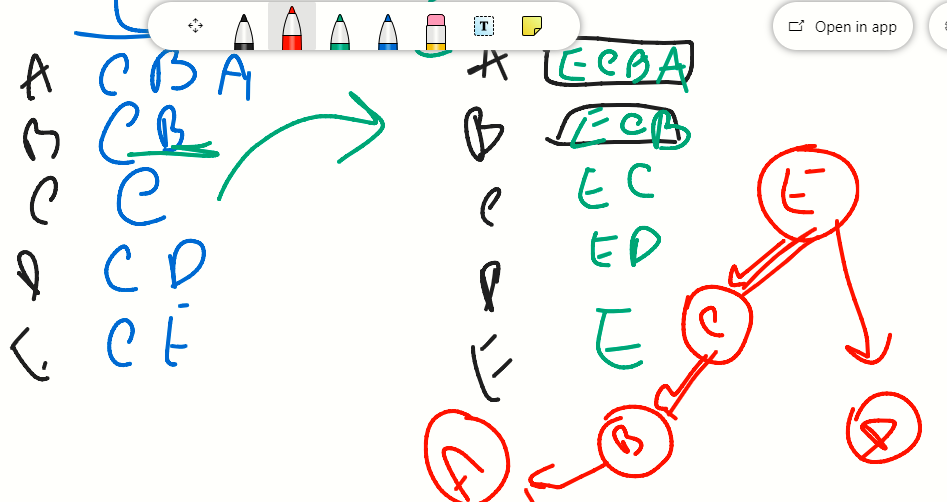 T
Open in app
A C B A
B C B
C C
D C D
E C E
A E C B A
B E C B
C E C
D E D
E E
E
C
B
A
D